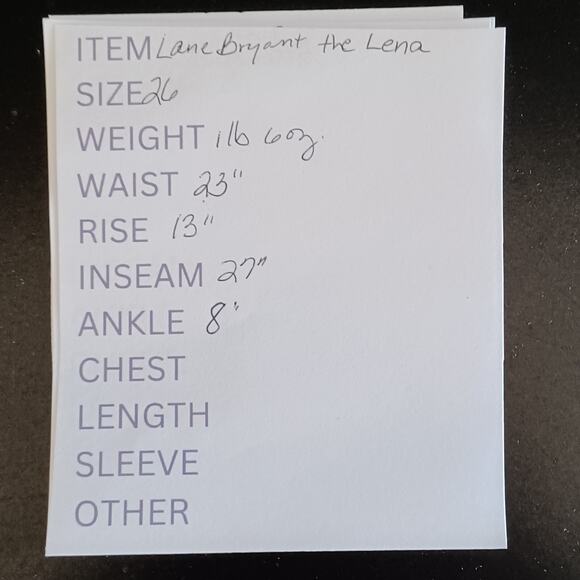 ITEM Lane Bryant the Lena
SIZE 26
WEIGHT 1lb 6oz.
WAIST 23"
RISE 13"
INSEAM 27"
ANKLE 8"
CHEST
LENGTH
SLEEVE
OTHER